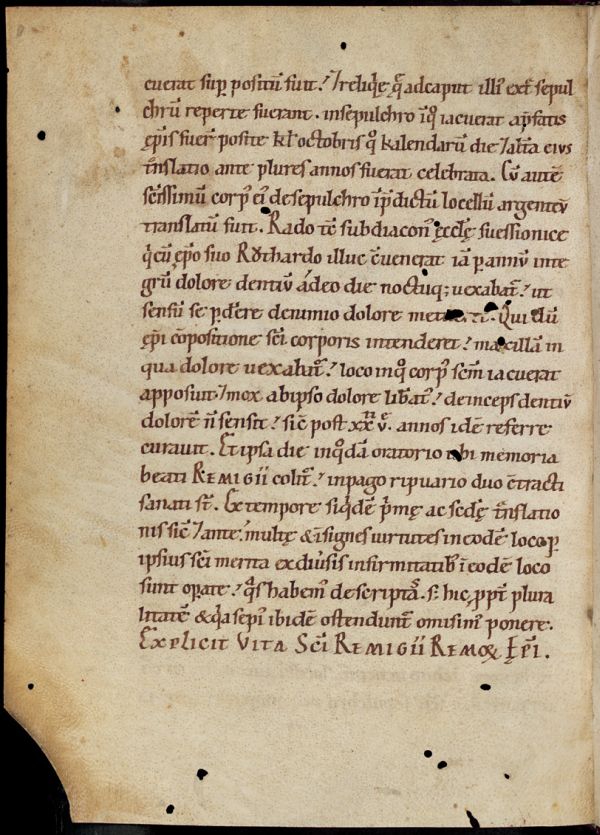 cuerat sup̄ positū fuit. ⁊ reliq̨ę q̄ ad caput illi᷒ ext̄ sepul
chrū reperte fuerant. in sepulchro in q̊ iacuerat a p̄fatis
ęp̄is fuer̄ posite kl̄ octobris q̊ kalendarū die ⁊ alt̄a eius
t̄nslatio ante plures annos fuerat celebrata. Cū autē
sc̄issimū corp᷒ ei᷒ de sepulchro in p̄dictū locellū argenteū
translatū fuit. Rado tc̄ subdiacon᷒ ęcclę suessionice
q̇ cū ep̄o suo Rothardo illuc c̄uenerat iā p annū inte
grū dolore dentiū adeo die noctuq; uexabat᷑. ut
sensū se pdere de nimio dolore Qui dū
ep̄i cōpositione sc̄i corporis intenderet. maxillā in
qua dolore uexabat᷑. loco in quo corp᷒ sc̄m iacuerat
apposuit. ⁊ mox ab ipso dolore libat᷒. deinceps dentiū
dolorē n̄ sensit. sic̄ post xx v annos idē referre
curauit. Et ipsa die in q̊dā oratorio ubi memoria
beati REMIGII colit᷑. in pago ripuario duo c̄tracti
sanati st̄. Ex tempore siq̇dē p̄mę ac sc̄dę t̄nslatio
nis sic̄ ⁊ ante. multę & insignes uirtutes in eodē loco p
ipsius sc̄i merita ex diu̇sis infirmitatib᷒ in eodē loco
sunt opate. q̄s habem᷒ descriptas. s; hic ppt̄ plura
litatē & q̇a sepi᷒ ibidē ostendunt᷑ omisim᷒ ponere.
EXPLICIT VITA SC̄I REMIGII REMOꝜ EP̄I.